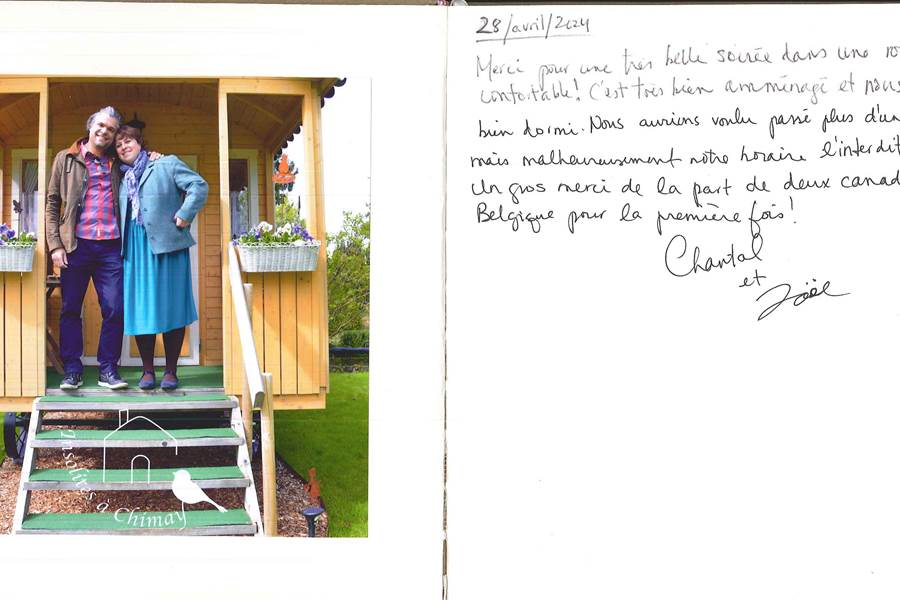 Insolites à Chimay
28/avril/2024
Merci pour une très belle soirée dans une ro
confortable! C'est très bien amménagé et nous
bien dormi. Nous aurions voulu passé plus d'un
mais malheureusement notre horaire l'interdit
Un gros merci de la part de deux canad
Belgique pour la première fois!
Chantal
et
Joël